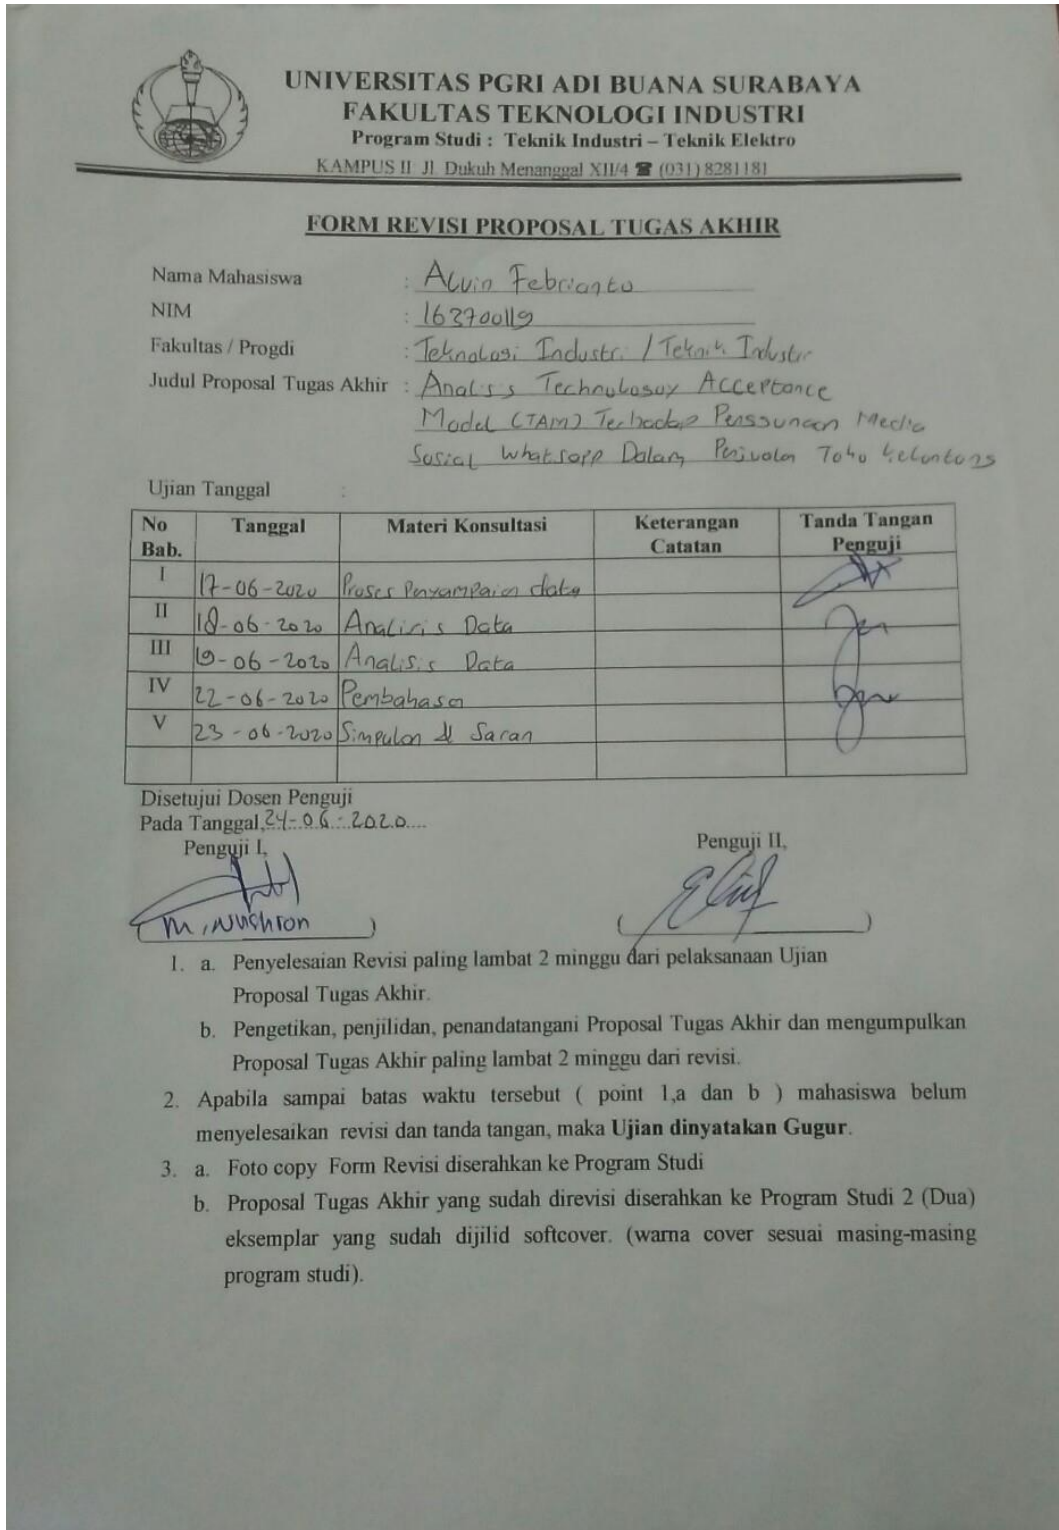 UNIVERSITAS PGRI ADI BUANA SURABAYA
FAKULTAS TEKNOLOGI INDUSTRI
Program Studi : Teknik Industri – Teknik Elektro
KAMPUS II Jl. Dukuh Menanggal XII/4 ☎ (031) 8281181
FORM REVISI PROPOSAL TUGAS AKHIR
Nama Mahasiswa : Alvin Febrianto
NIM : 163700119
Fakultas / Progdi : Teknologi Industri / Teknik Industri
Judul Proposal Tugas Akhir : Analisis Technology Acceptance
Model (TAM) Terhadap Penggunaan Media
Sosial Whatsapp Dalam Penjualan Toko kelontong
Ujian Tanggal :
No Bab. Tanggal Materi Konsultasi Keterangan Catatan Tanda Tangan Penguji
I 17-06-2020 Proses Penyampaian data
II 18-06-2020 Analisis Data
III 19-06-2020 Analisis Data
IV 22-06-2020 Pembahasan
V 23-06-2020 Simpulan & Saran
Disetujui Dosen Penguji
Pada Tanggal, 24-06-2020
Penguji I, Penguji II,
(M. Nushron) ( )
1. a. Penyelesaian Revisi paling lambat 2 minggu dari pelaksanaan Ujian
Proposal Tugas Akhir.
b. Pengetikan, penjilidan, penandatangani Proposal Tugas Akhir dan mengumpulkan
Proposal Tugas Akhir paling lambat 2 minggu dari revisi.
2. Apabila sampai batas waktu tersebut ( point 1,a dan b ) mahasiswa belum
menyelesaikan revisi dan tanda tangan, maka Ujian dinyatakan Gugur.
3. a. Foto copy Form Revisi diserahkan ke Program Studi
b. Proposal Tugas Akhir yang sudah direvisi diserahkan ke Program Studi 2 (Dua)
eksemplar yang sudah dijilid softcover. (warna cover sesuai masing-masing
program studi).